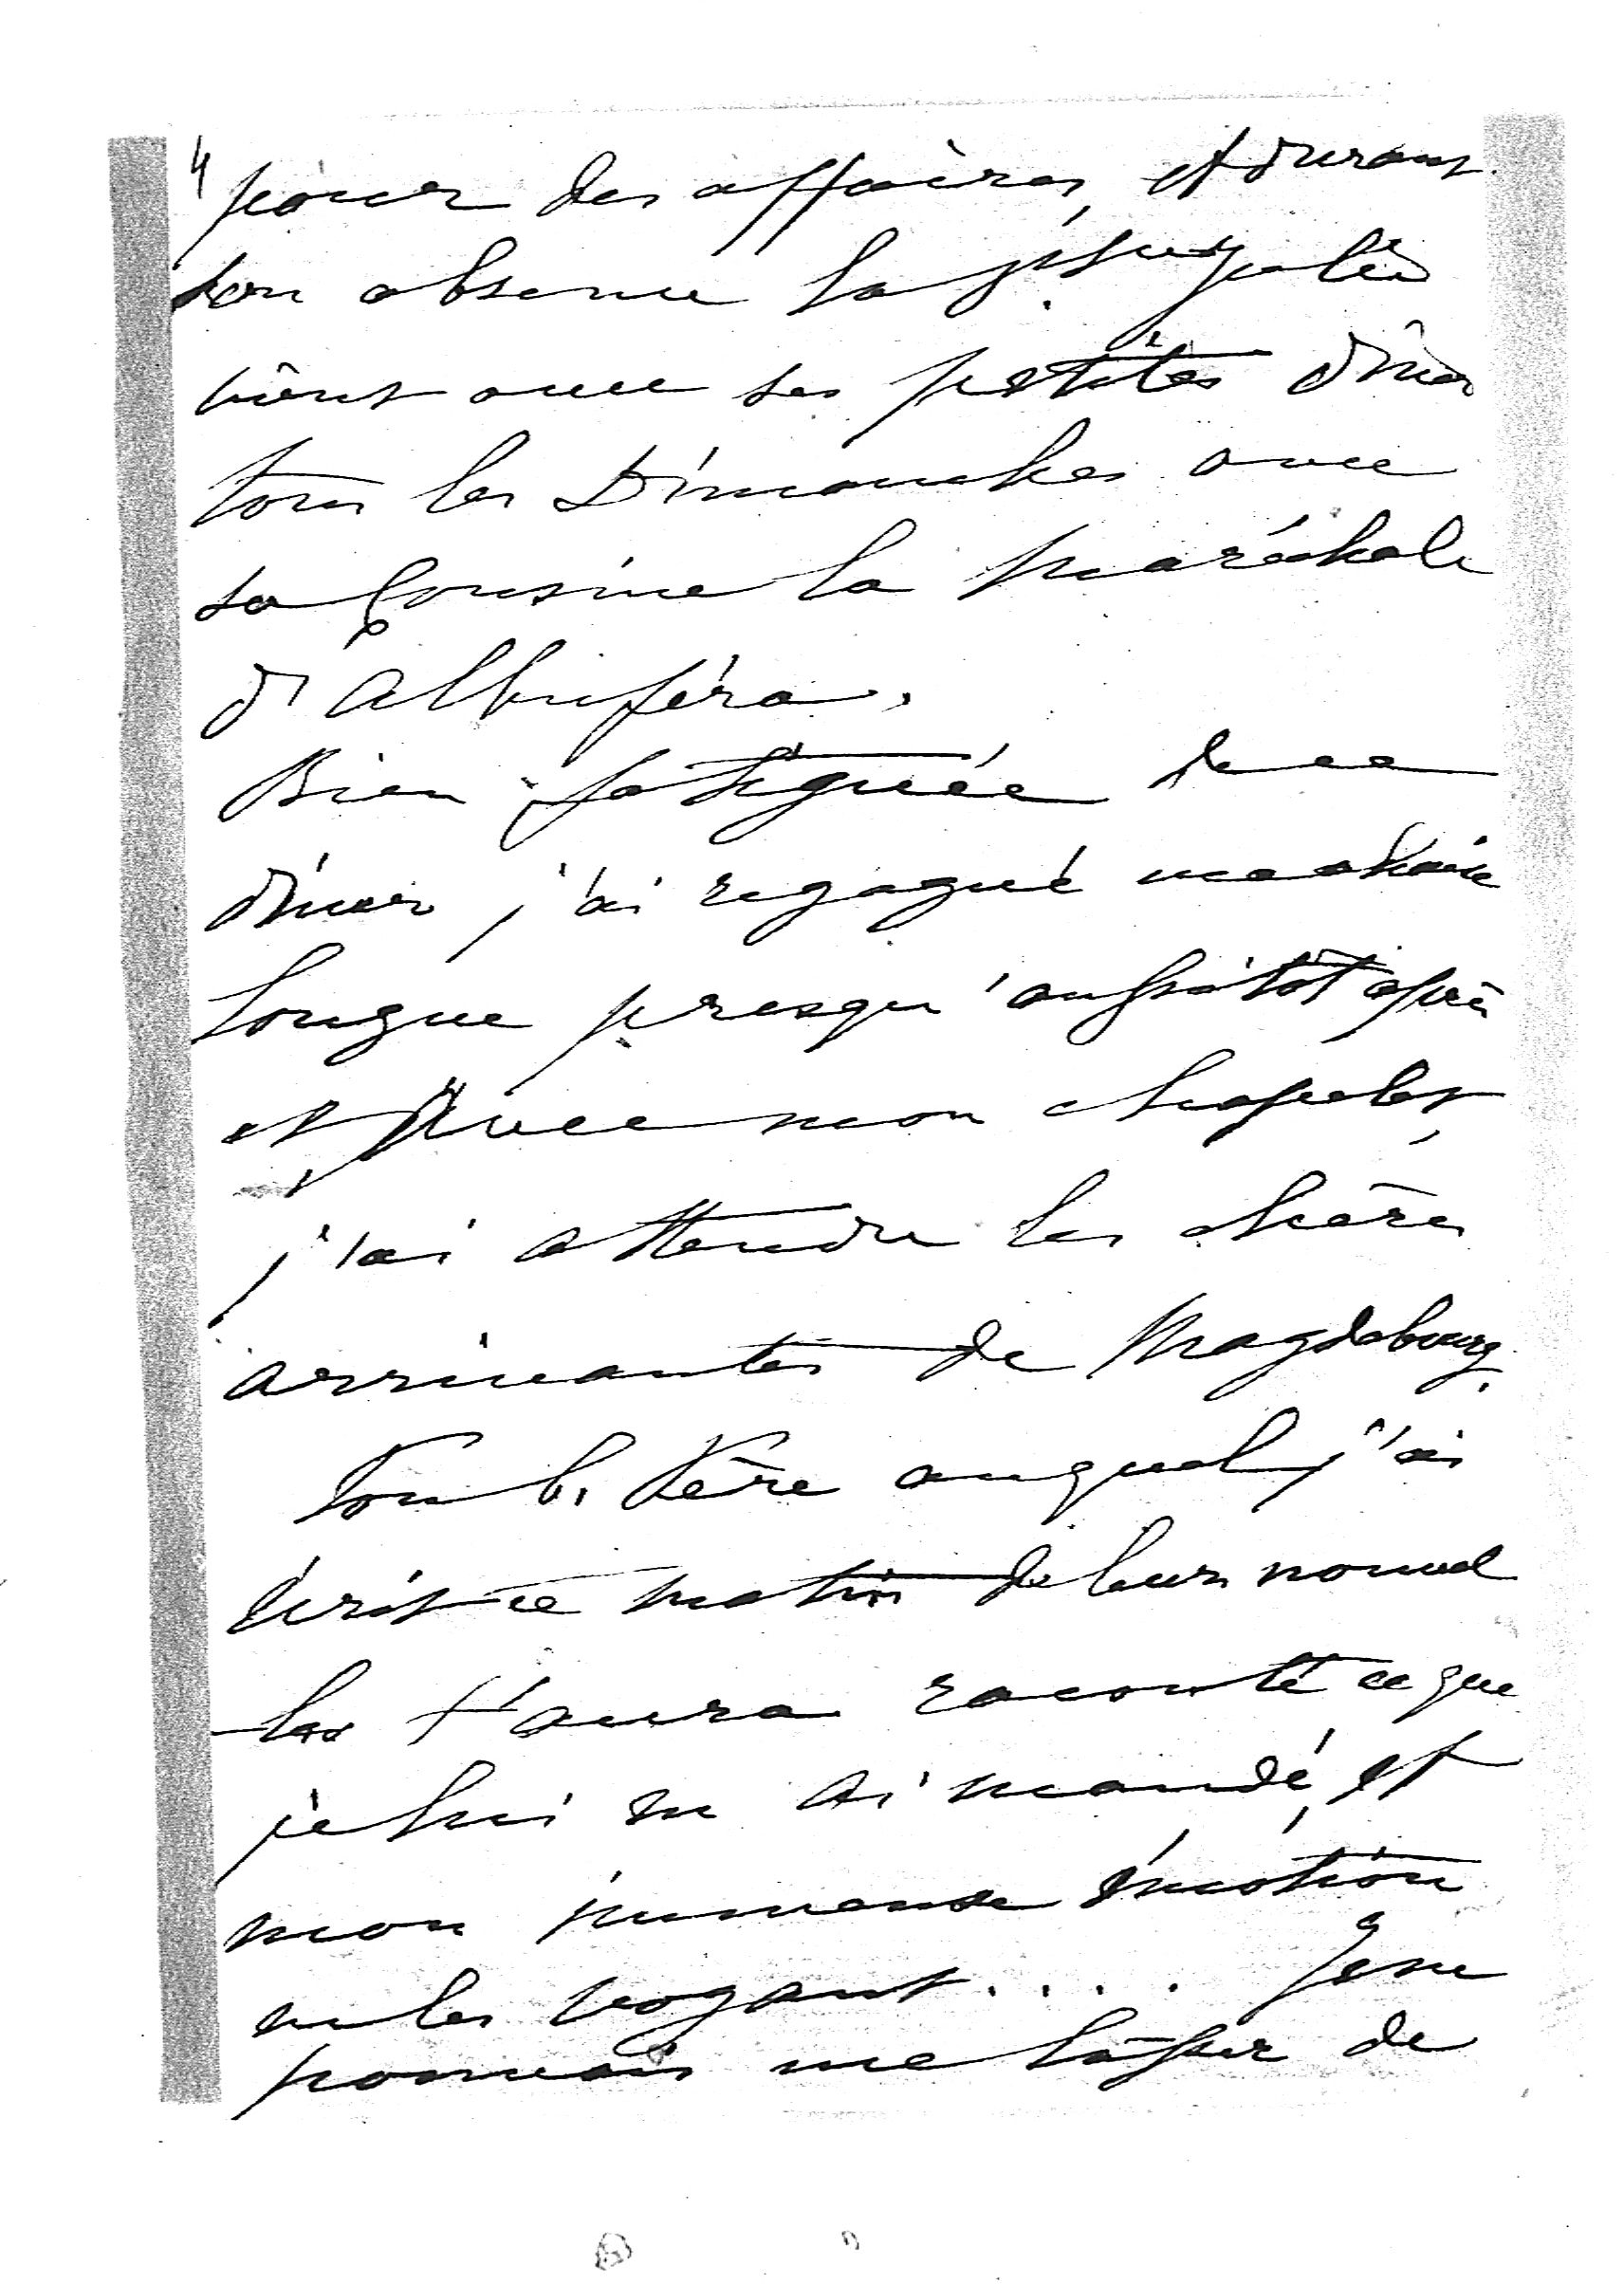 4
pour des affaires, et durant
son absence la Psse Julie
vient avec ses petites dîner
tous les Dimanches avec
sa Cousine la Maréchale
d'Albuféra.
Bien fatiguée de ce
dîner j'ai regagné ma chaise
longue presqu'aussitôt après
et avec mon chapelet,
j'ai attendu les chères
arrivantes de Magdebourg.
Ton b. Père auquel j'ai
écrit ce matin de leurs nouvel
-les t'aura raconté ce que
je lui en ai mandé, et
mon immense émotion
en les voyant.... Je ne
pouvais me lasser de